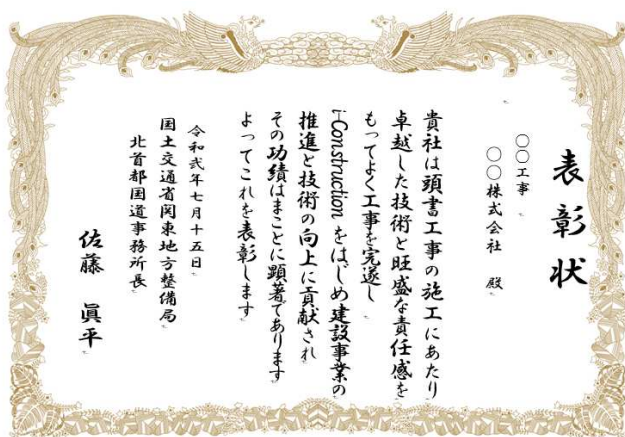 表彰状
〇〇工事
〇〇株式会社 殿
貴社は頭書工事の施工にあたり
卓越した技術と旺盛な責任感を
もってよく工事を完遂し
i-Construction をはじめ建設事業の
推進と技術の向上に貢献され
その功績はまことに顕著であります
よってこれを表彰します
令和弐年七月十五日
国土交通省関東地方整備局
北首都国道事務所長
佐藤 眞平